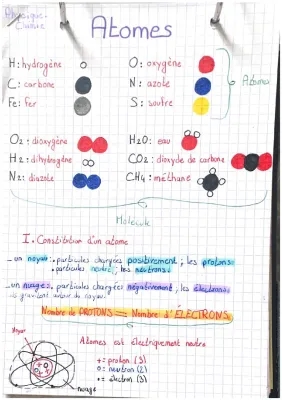 Physique-
Chimie
Atomes
H: hydrogène
O: oxygène
C: carbone
N: azote
Atomes
Fe: fer
S: soufre
O2: dioxygène
H2O: eau
H2: dihydrogène
CO2: dioxyde de carbone
N2: diazote
CH4: méthane
Molécule
I. Constitution d'un atome
_ un noyau: particules chargées positivement; les protons.
• particules neutre; les neutrons.
_ un nuage: particules chargées négativement, les électrons.
ils gravitent autour du noyau.
Nombre de PROTONS = Nombre d'ÉLECTRONS
Noyau
Atomes est électriquement neutre
+ = proton (3)
o = neutron (2)
• = électron (3)
nuage